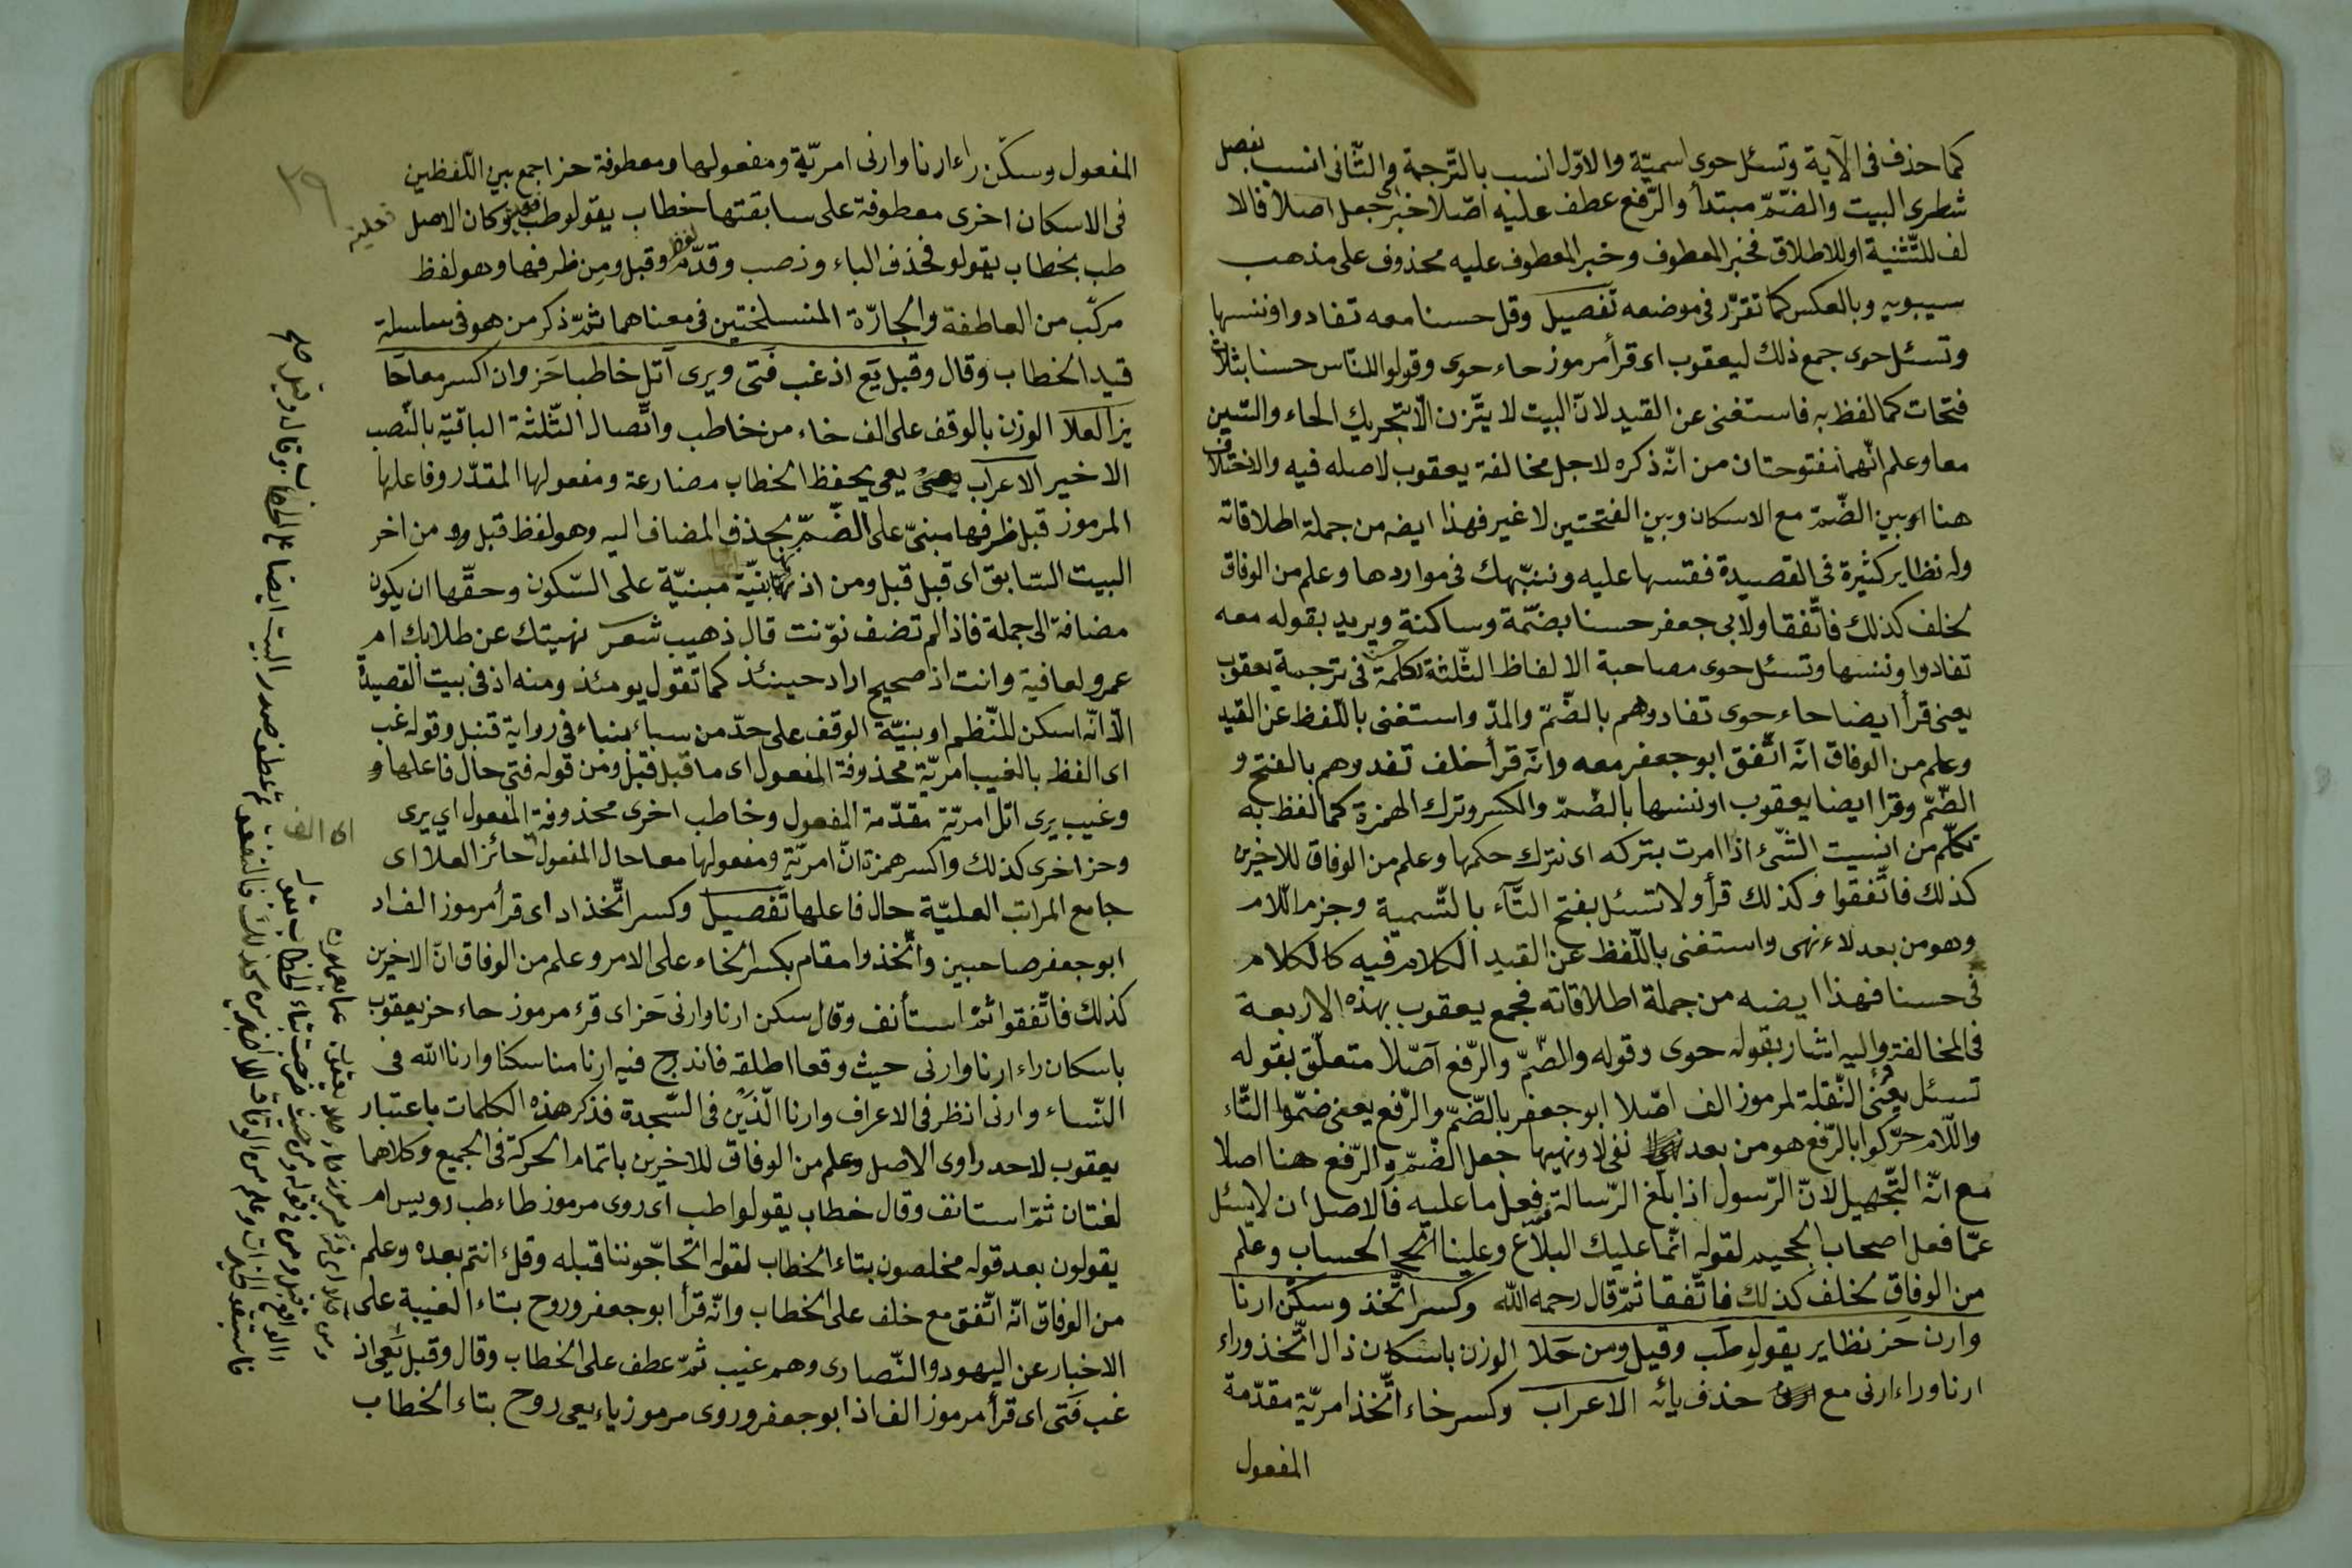 كما حذف فى الآية وتسئل حوى اسميّة والاوّل انسب بالتّرجمة والثّانى انسب بفصل
شطرى البيت والضّمّ مبتدأ والرّفع عطف عليه اصّلا خبر اى جعل اصلا فالا
لف للتّثنية او للاطلاق فخبر المعطوف وخبر المعطوف عليه محذوف على مذهب
سيبويه وبالعكس كما تقرّر فى موضعه تفصيل وقل حسنا معه تفادوا وننسها
وتسئل حوى جمع ذلك ليعقوب اى قرأ مرموز حاء حوى وقولوا للنّاس حسنا بثلاث
فتحات كما لفظ به فاستغنى عن القيد لانّ البيت لا يتّزن الّا بتحريك الحاء والسّين
معا وعلم انّهما مفتوحتان من انّه ذكره لاجل مخالفة يعقوب لاصله فيه والاختلاف
هنا امّا بين الضّمّ مع الاسكان وبين الفتحتين لا غير فهذا ايضه من جملة اطلاقاته
وله نظاير كثيرة فى القصيدة فقسها عليه وننبّهك فى مواردها وعلم من الوفاق
لخلف كذلك فاتّفقا ولابى جعفر حسنا بضمّة وساكنة ويريد بقوله معه
تفادوا وننسها وتسئل حوى مصاحبة الالفاظ الثّلثة لكلمة حسنا فى ترجمة يعقوب
يعنى قرأ ايضا حاء حوى تفادوهم بالضّمّ والمدّ واستغنى باللّفظ عن القيد
وعلم من الوفاق انّه اتّفق ابو جعفر معه وانّه قرأ خلف تفدوهم بالفتح و
الضّمّ وقرا ايضا يعقوب اوننسها بالضّمّ والكسر وترك الهمزة كما لفظ به
تكلّم من انسيت الشّئ اذا امرت بتركه اى نترك حكمها وعلم من الوفاق للاخرين
كذلك فاتّفقوا وكذلك قرأ ولا تسئل بفتح التّآء بالتّسمية وجزم اللّام
وهو من بعد لاء نهى واستغنى باللّفظ عن القيد الكلام فيه كالكلام
فى حسنا فهذا ايضه من جملة اطلاقاته فجمع يعقوب بهذه الاربعة
فى المخالفة واليه اشار بقوله حوى وقوله والضّمّ والرّفع اصّلا متعلّق بقوله
تسئل يعنى النّقلة لمرموز الف اصّلا ابو جعفر بالضّمّ والرّفع يعنى ضمّوا التّاء
واللّام حرّكوا بالرّفع هو من بعد نفى لا ونهيها جعل الضّمّ والرّفع هنا اصلا
مع انّه التّجهيل لانّ الرّسول اذا بلّغ الرّسالة فعل ما عليه فالاصل ان لا يسئل
عمّا فعل اصحاب الجحيم لقوله انّما عليك البلاغ وعلينا الحساب وعلم
من الوفاق لخلف كذلك فاتّفقا ثمّ قال رحمه الله وكسر اتّخذ وسكّن ارنا
وارن حَز نظاير يقولوا طب وقيل ومن حَلا الوزن باسكان ذال اتّخذ وراء
ارنا وراء ارنى مع حذف يائه الاعراب وكسر خاء اتّخذ امريّة مقدّمة
المفعول
٢٩
المفعول وسكّن راء ارنا وارنى امريّة ومفعولها ومعطوفة حز اجمع بين اللّفظين
فى الاسكان اخرى معطوفة على سابقتها خطاب يقولو طب وكان الاصل
طب بخطاب يقولو فحذف الباء ونصب وقدّم وقبل ومن ظرفها وهو لفظ
مركّب من العاطفة والجارّة المنسلختين فى معناهما ثمّ ذكر من هو فى سلسلة
قيد الخطاب وقال وقبل يَعِ اذ غب فَتى ويرى اَتل خاطبا حَز وان اكسر معا حَا
يز العلا الوزن بالوقف على الف خاء من خاطب واتّصال الثّلثة الباقية بالنّصب
الاخير الاعراب يعى يحفظ الخطاب مضارعة ومفعولها المقدّر وفاعلها
المرموز قبل ظرفها مبنىّ على الضّمّ بحذف المضاف اليه وهو لفظ قبل ومن اخر
البيت السّابق اى قبل قبل ومن اذ مبنيّة على السّكون وحقّها ان يكون
مضافة الى جملة فاذا لم تضف نوّنت قال ذهيب شعر نهيتك عن طلابك ام
عمرو لعافية وانت اذ صحيح اراد حينئذ كما تقول يومئذ ومنه اذ فى بيت القصيدة
الّا انّه اسكن للنّظم او بنيّة الوقف على حدّ من سبأ بنباء فى رواية قنبل وقوله غب
اى الفظ بالغيب امريّة محذوفة المفعول اى ما قبل قبل ومن قوله فتى حال فاعلها و
وغيب يرى اتل امريّة مقدّمة المفعول وخاطب اخرى محذوفة المفعول اى يرى
وحز اخرى كذلك واكسر همزة انّ امريّة ومفعولها معا حال المفعول حائز العلا اى
جامع المراتب العليّة حال فاعلها تفصيل وكسر اتّخذ اد اى قرأ مرموز الف اد
ابو جعفر صاحبين واتّخذوا مقام بكسر الخاء على الامر وعلم من الوفاق انّ الاخرين
كذلك فاتّفقوا ثمّ استأنف وقال سكن ارنا وارنى حَز اى قرء مرموز حاء حز يعقوب
باسكان راء ارنا وارنى حيث وقعا اطلقه فاندرج فيه ارنا مناسكنا وارنا الله فى
النّساء وارنى انظر فى الاعراف وارنا الّذين فى السّجدة فذكر هذه الكلمات باعتبار
يعقوب لاحد راوى الاصل وعلم من الوفاق للاخرين باتمام الحركة فى الجميع وكلاهما
لغتان ثمّ استانف وقال خطاب يقولوا طب اى روى مرموز طاء طب رويس ام
يقولون بعد قوله مخلصون بتاء الخطاب لقوله اتحاجّوننا قبله وقل ءانتم بعده وعلم
من الوفاق انّه اتّفق مع خلف على الخطاب وانّه قرأ ابو جعفر وروح بتاء الغيبة على
الاخبار عن اليهود والنّصارى وهم غيب ثمّ عطف على الخطاب وقال وقبل يَعى اذ
غب فَتى اى قرأ مرموز الف اذ ابو جعفر وروى مرموز ياء يعى روح بتاء الخطاب
اى الف